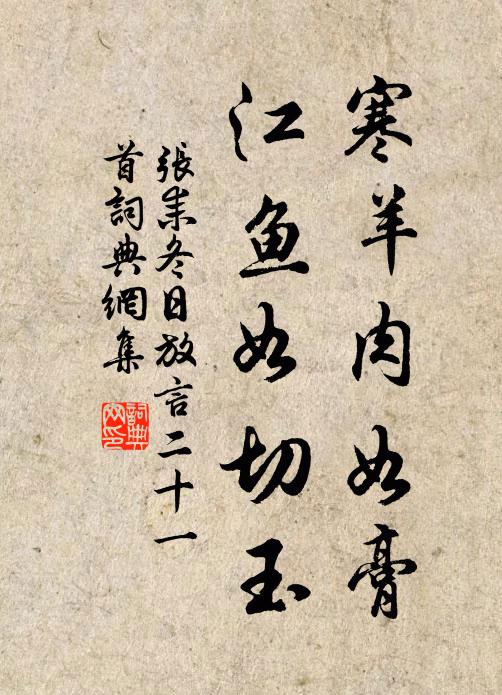 寒羊肉如膏
江鱼如切玉
張耒冬日放言二十一
首詞典網集
詞典网印